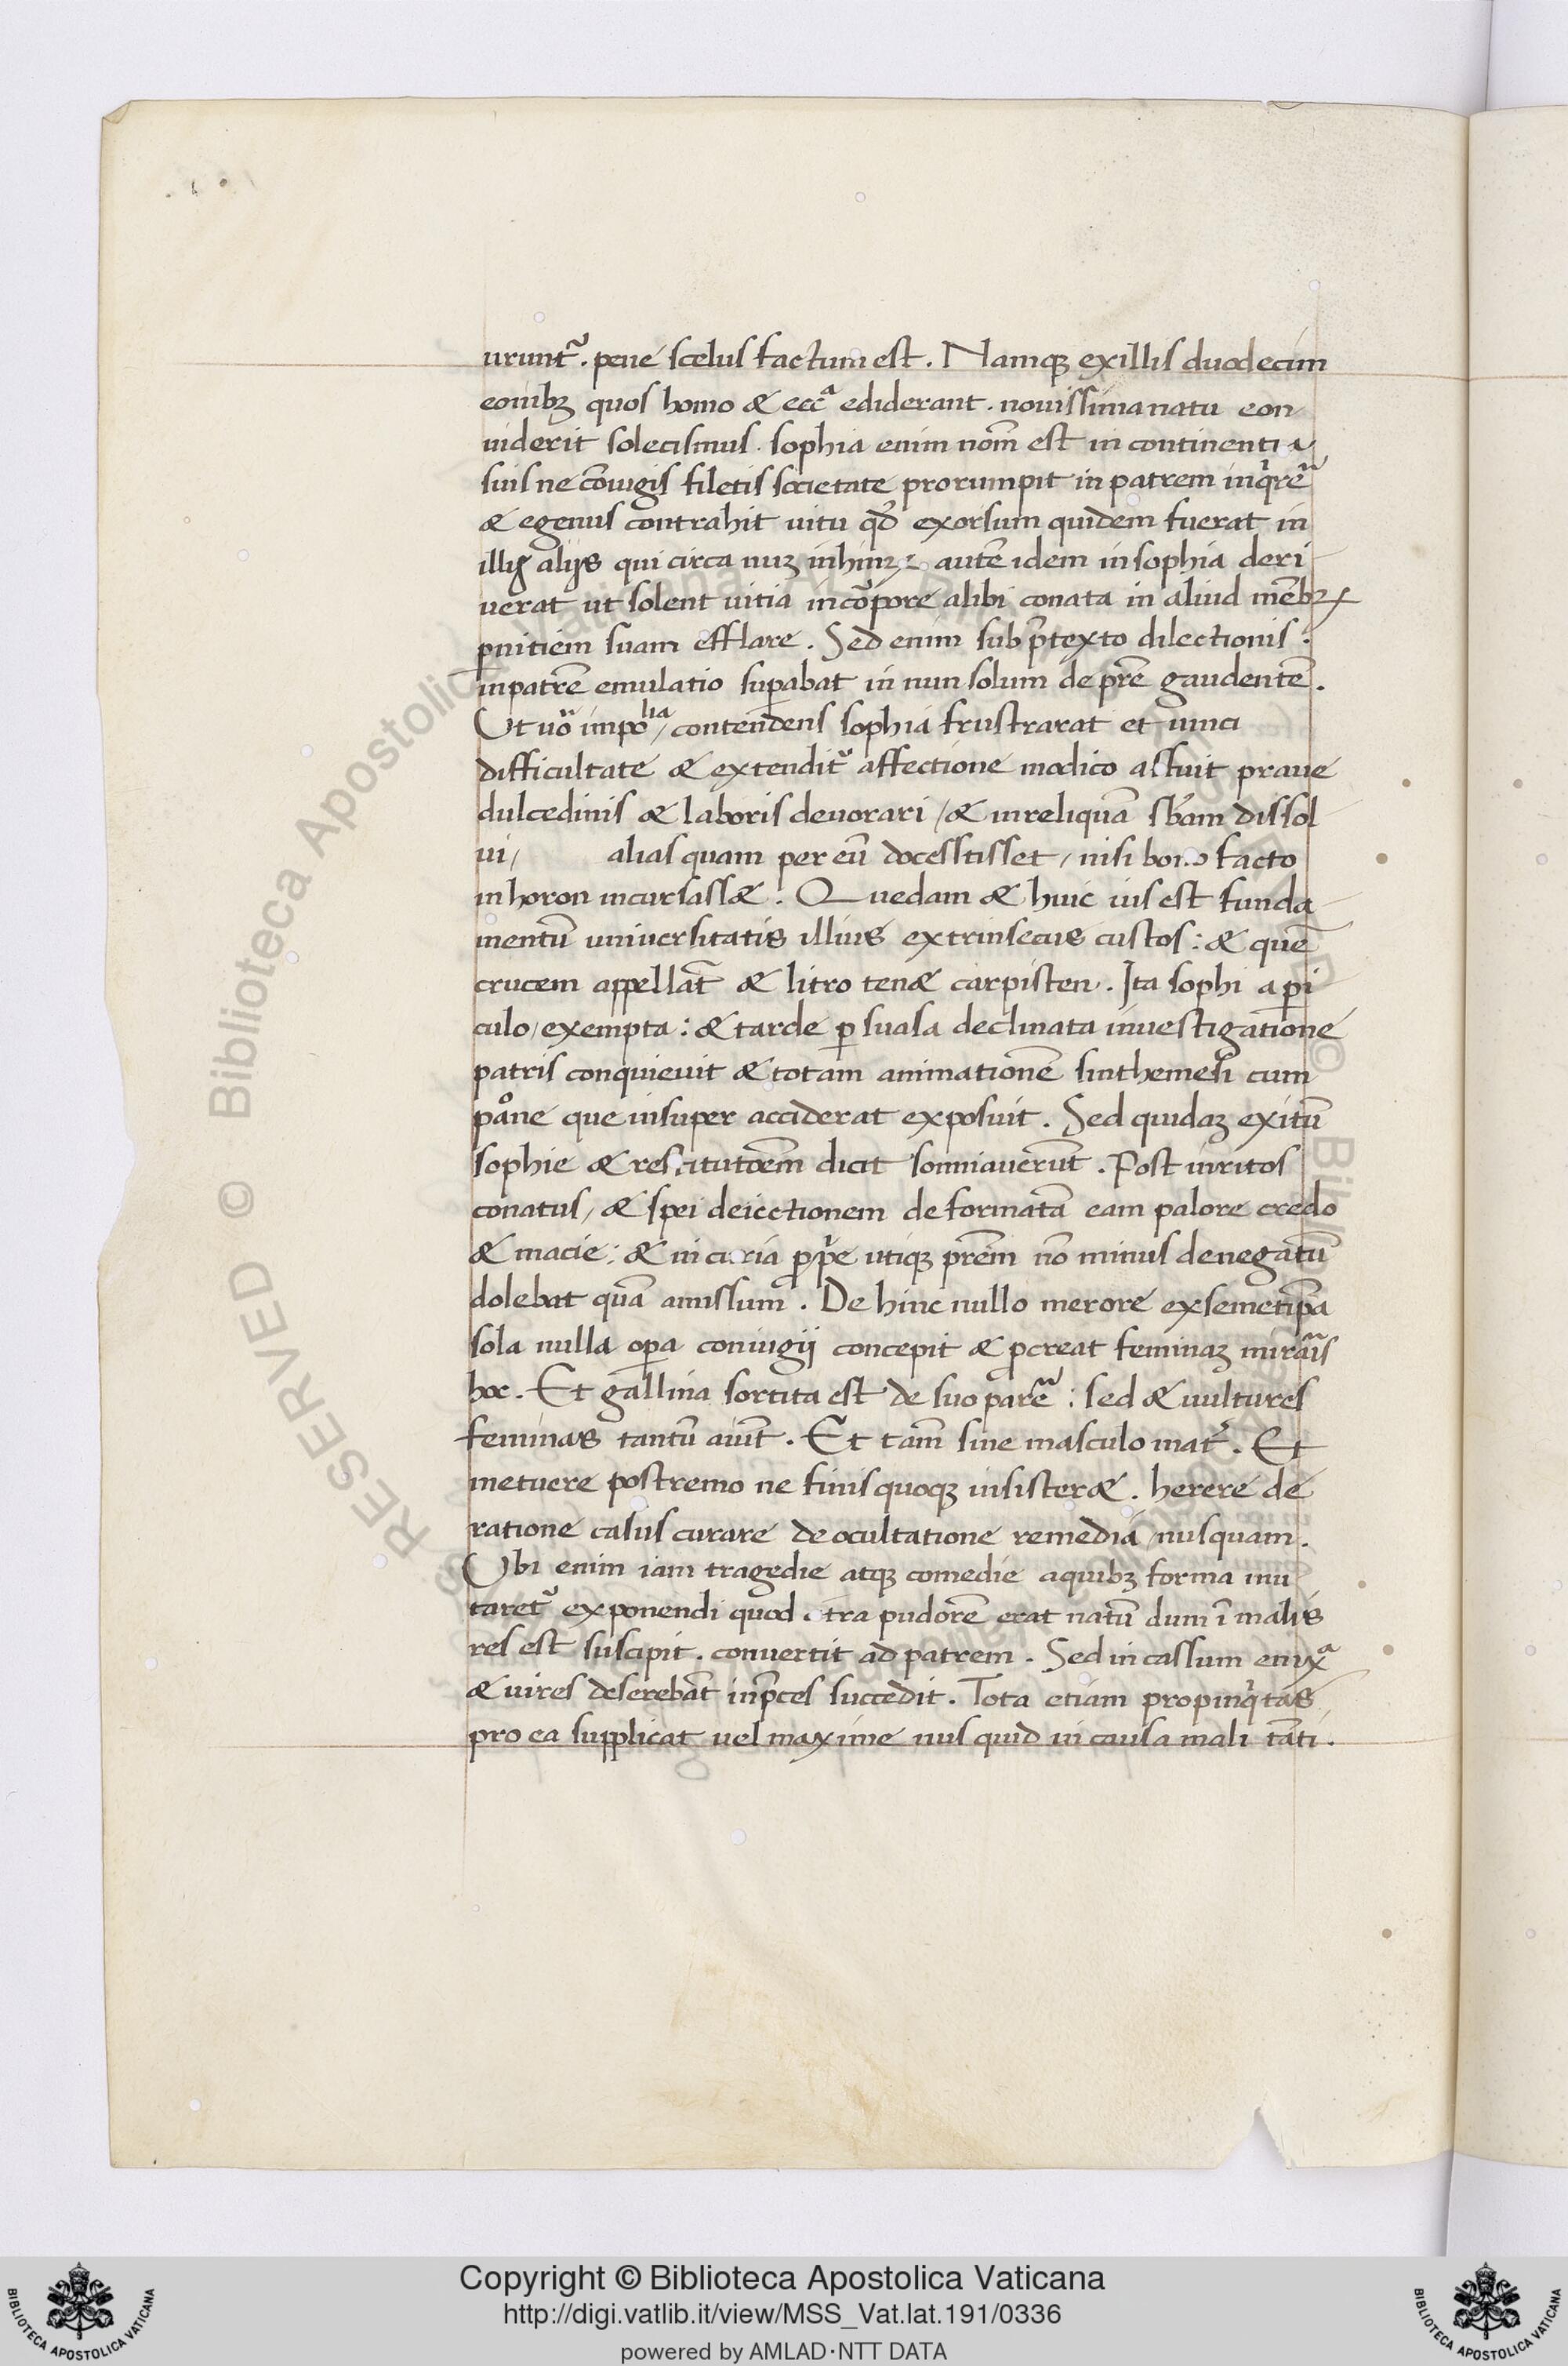 urunt᷑. pene scelus factum est. Namqꝫ ex illis duodecim
eonibꝫ quos homo & ecc̃a ediderant. nouissima natu eon
uiderit solecismus. sophia enim nom̃ est in continentia
suis ne cõiugis filetis societate prorumpit in patrem inq̇rẽ
& egenus contrahit uitu qđ exorsum quidem fuerat in
illis alijs qui circa nuꝫ in hunꝫ autẽ idem in sophia deri
uerat ut solent uitia in cõꝑore alibi conata in aliud mẽbꝝ
ꝑnitiem suam efflare. Sed enim sub p̃texto dilectionis:
in patrẽ emulatio suꝑabat in nun solum de pr̃e gaudentẽ.
Ut uõ impoˡⁱᵃ / contendens sophia frustrarat et uinci
difficultate & extendit᷑ affectione modico astuit praue
dulcedinis & laboris deuorari / & in reliquã sb̃am dissol
ui / alias quam per eũ docesstisset / nisi bono facto
in horon incursass&. Quedam & huic uis est funda
mentũ uniuersitatis illius extrinsecus custos: & quẽ
crucem appellãt & litro ten& carpisten. Ita sophi a ꝑi
culo / exempta: & tarde ꝑ suasa declinata inuestigationẽ
patris conquieuit & totam animationẽ sinthemesi cum
pãone que insuper acciderat exposuit. Sed quidaꝫ exitũ
sophie & rescitutoẽm dicit somniauerũt. Post irritos
conatus / & spei deiectionem deformatã eam palore credo
& macie: & incuria ꝓp̃e utiqꝫ pr̃em nõ minus denegatũ
dolebat quã amissum. De hinc nullo merore ex semetip̃a
sola nulla oꝑa coniugij concepit & ꝓcreat feminaꝫ mirãis
hoc. Et gallina sortita est de suo parẽ: sed & uultures
feminas tantũ aiũt. Et tam̃ sine masculo mat᷑. Et
metuere postremo ne finis quoqꝫ insister&. herere de
ratione casus curare de ocultatione remedia / nusquam.
Ubi enim iam tragedie atqꝫ comedie a quibꝫ forma mu
taret᷑ exponendi quod citra pudorẽ erat natũ dum ĩ malis
res est suscipit. conuertit ad patrem. Sed in cassum enixᵃ
& uires deserebãt in p̃ces succedit. Tota etiam propinq̇tas
pro ea supplicat uel maxime nus quid in causa mali tãti.
Copyright © Biblioteca Apostolica Vaticana
http://digi.vatlib.it/view/MSS_Vat.lat.191/0336
powered by AMLAD·NTT DATA